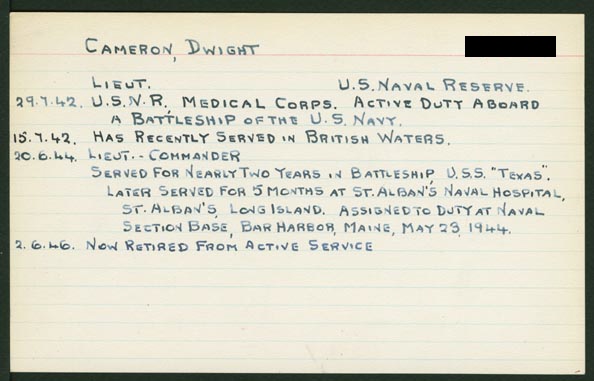 CAMERON, DWIGHT
LIEUT. U.S. NAVAL RESERVE.
29.7.42. U.S.N.R., MEDICAL CORPS. ACTIVE DUTY ABOARD
A BATTLESHIP OF THE U.S. NAVY.
15.7.42. HAS RECENTLY SERVED IN BRITISH WATERS.
20.6.44. LIEUT.-COMMANDER
SERVED FOR NEARLY TWO YEARS IN BATTLESHIP, U.S.S. "TEXAS".
LATER SERVED FOR 5 MONTHS AT ST. ALBAN'S NAVAL HOSPITAL,
ST. ALBAN'S, LONG ISLAND. ASSIGNED TO DUTY AT NAVAL
SECTION BASE, BAR HARBOR, MAINE, MAY 23, 1944.
2.6.46. NOW RETIRED FROM ACTIVE SERVICE